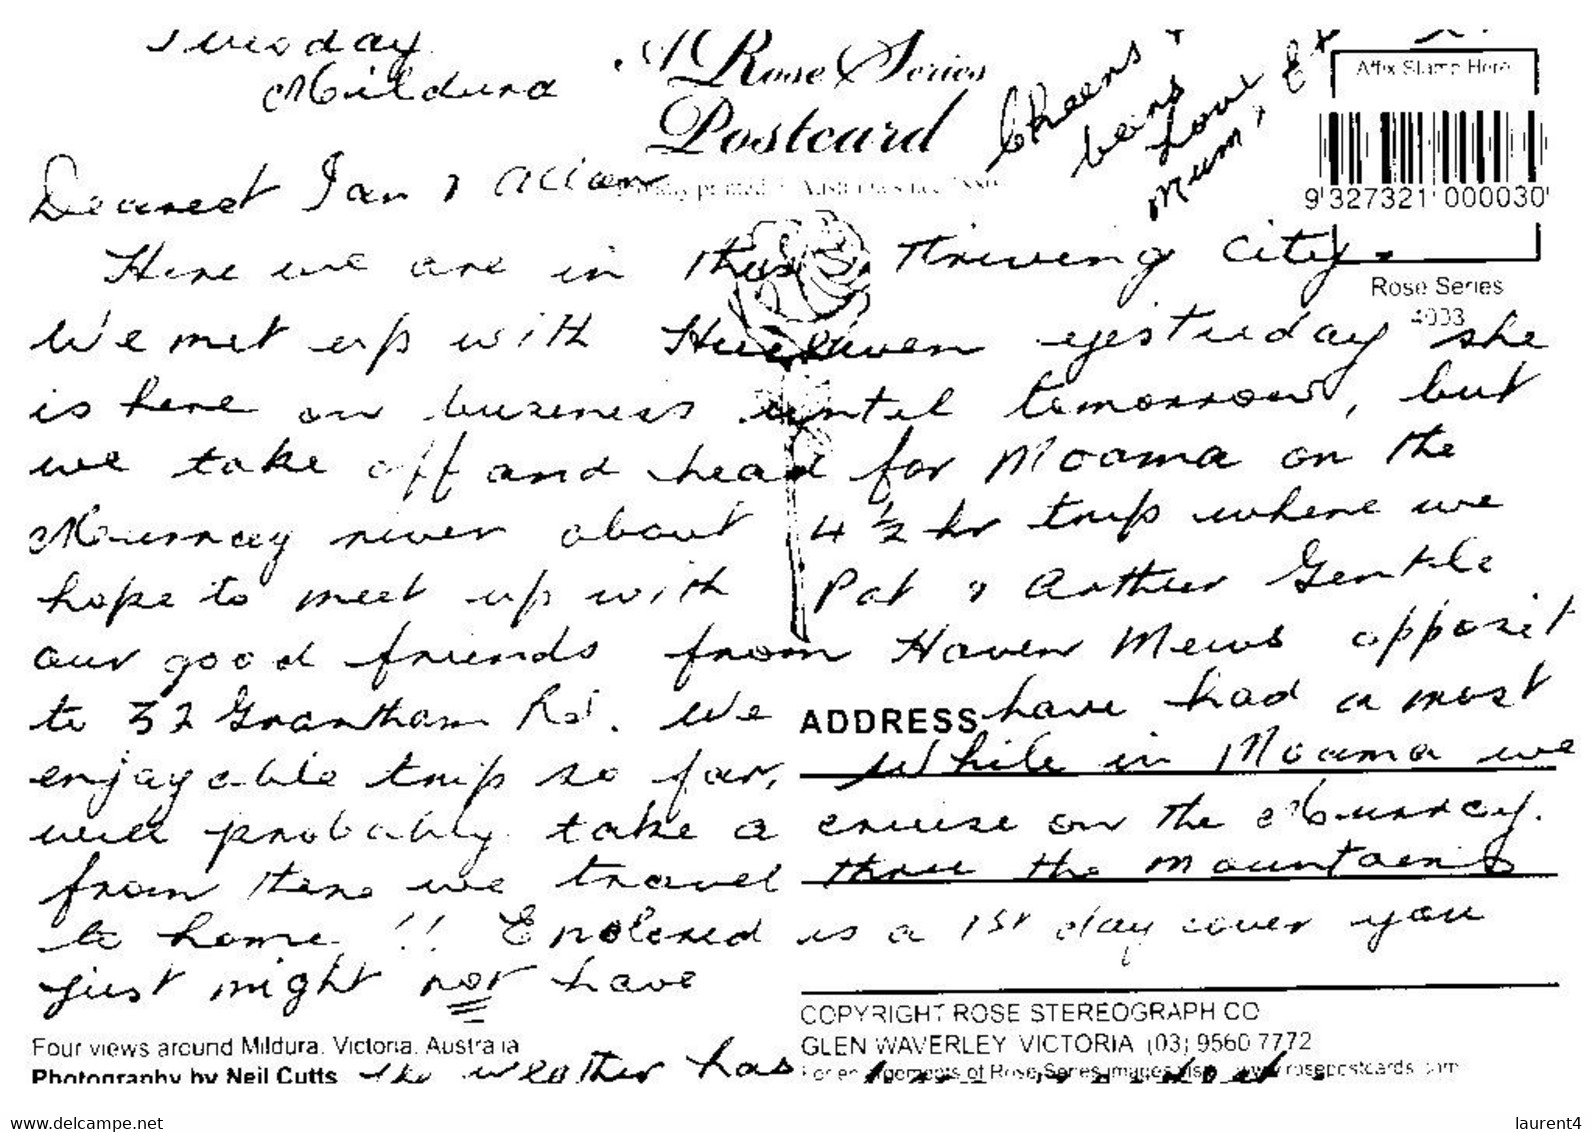 Tuesday
Mildura
A Rose Series
Postcard
Cheers +
Love
Mum,
Affix Stamp Here
9 327321 000030
Rose Series
Dearest Ian &
Here we are in this thriving city.
We met up with yesterday she
is here on business until tomorrow, but
we take off and head for Moama on the
Murray river about 4½ hr trip where we
hope to meet up with Pat & Arthur Gentle
our good friends from Haven Mews opposit
to 32 Grantham Rd. We have had a most
ADDRESS
enjoyable trip so far, While in Moama we
will probably take a cruise on the Murray.
from there we travel thru the mountains
to home !! Enclosed is a 1st day cover you
just might not have
COPYRIGHT ROSE STEREOGRAPH CO
Four views around Mildura, Victoria, Australia
GLEN WAVERLEY VICTORIA (03) 9560 7772
Photography by Neil Cutts
the weather has
For enlargements of Rose Series images visit www.rosepostcards.com
www.delcampe.net
laurent4